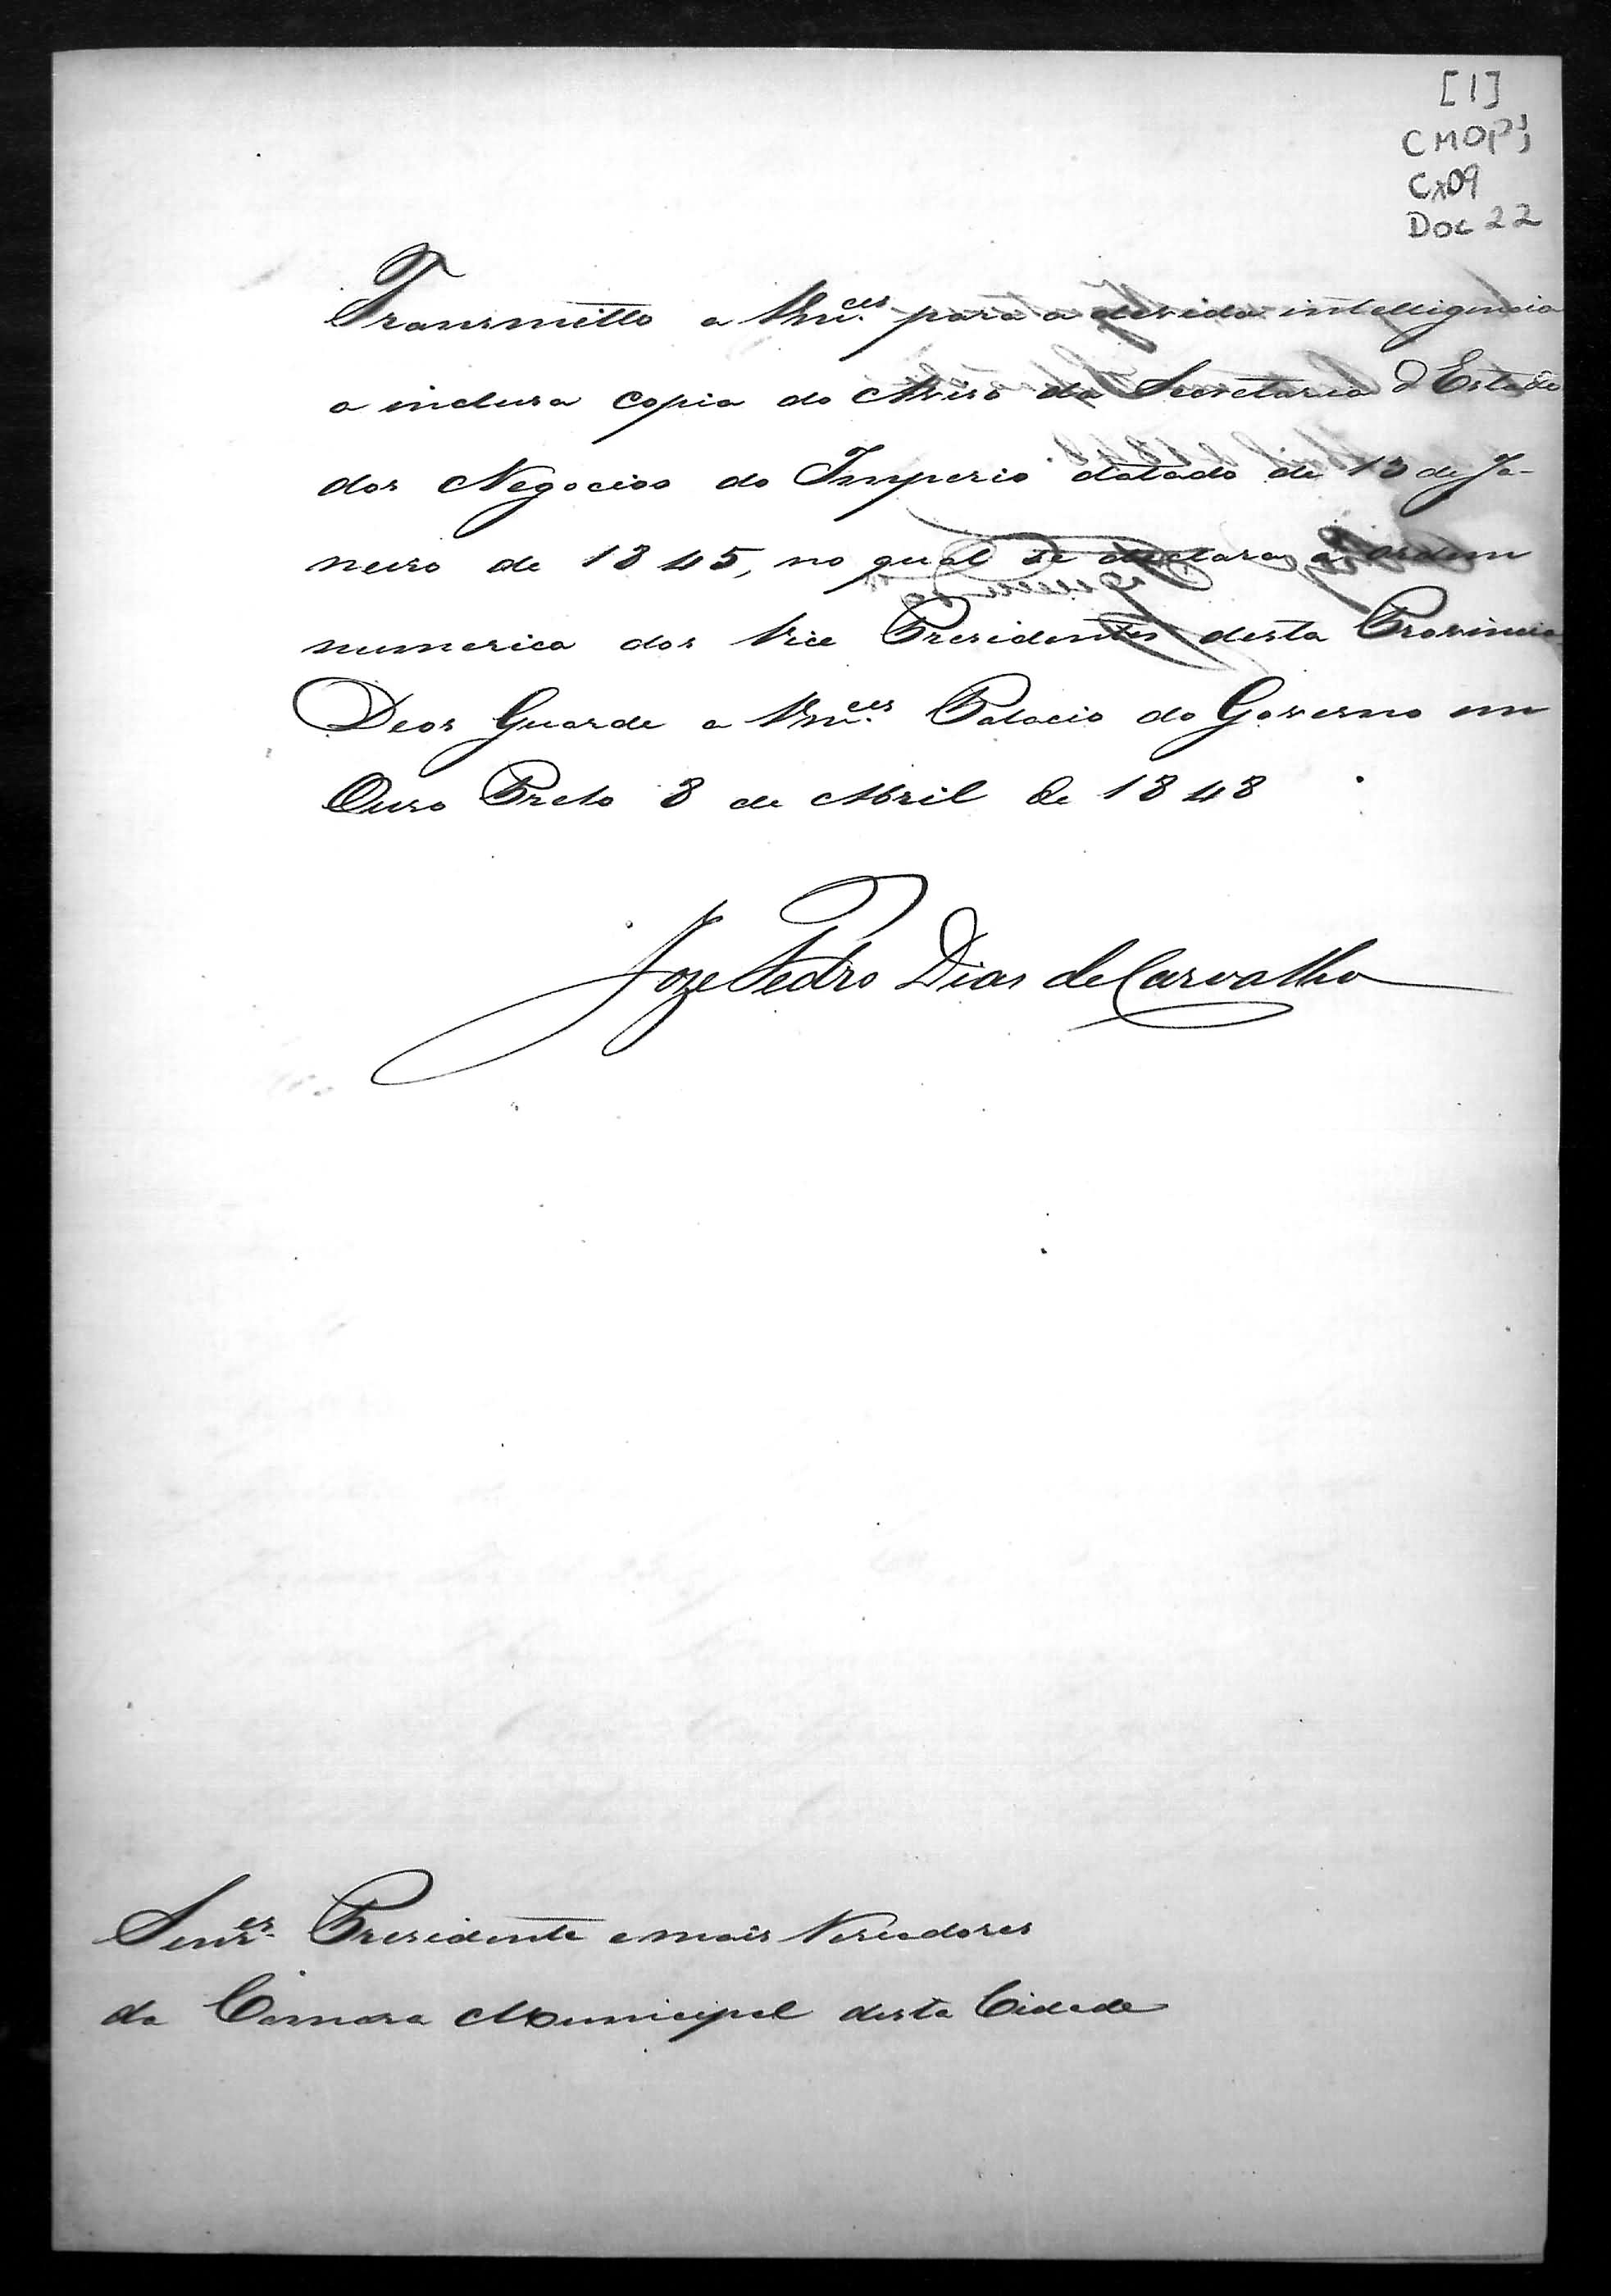 [1]
CMOPJ
Cx09
Doc 22
Transmitto a Vm.ces para a devida intelligencia
a inclusa copia do Aviso da Secretaria d'Estado
dos Negocios do Imperio datado de 13 de Ja-
neiro de 1845, no qual se declara a ordem
numerica dos Vice Presidentes desta Provincia
Deos Guarde a Vm.ces Palacio do Governo em
Ouro Preto 8 de Abril de 1848
Joze Pedro Dias de Carvalho
Senr.es Presidente e mais Vereadores
da Camara Municipal desta Cidade